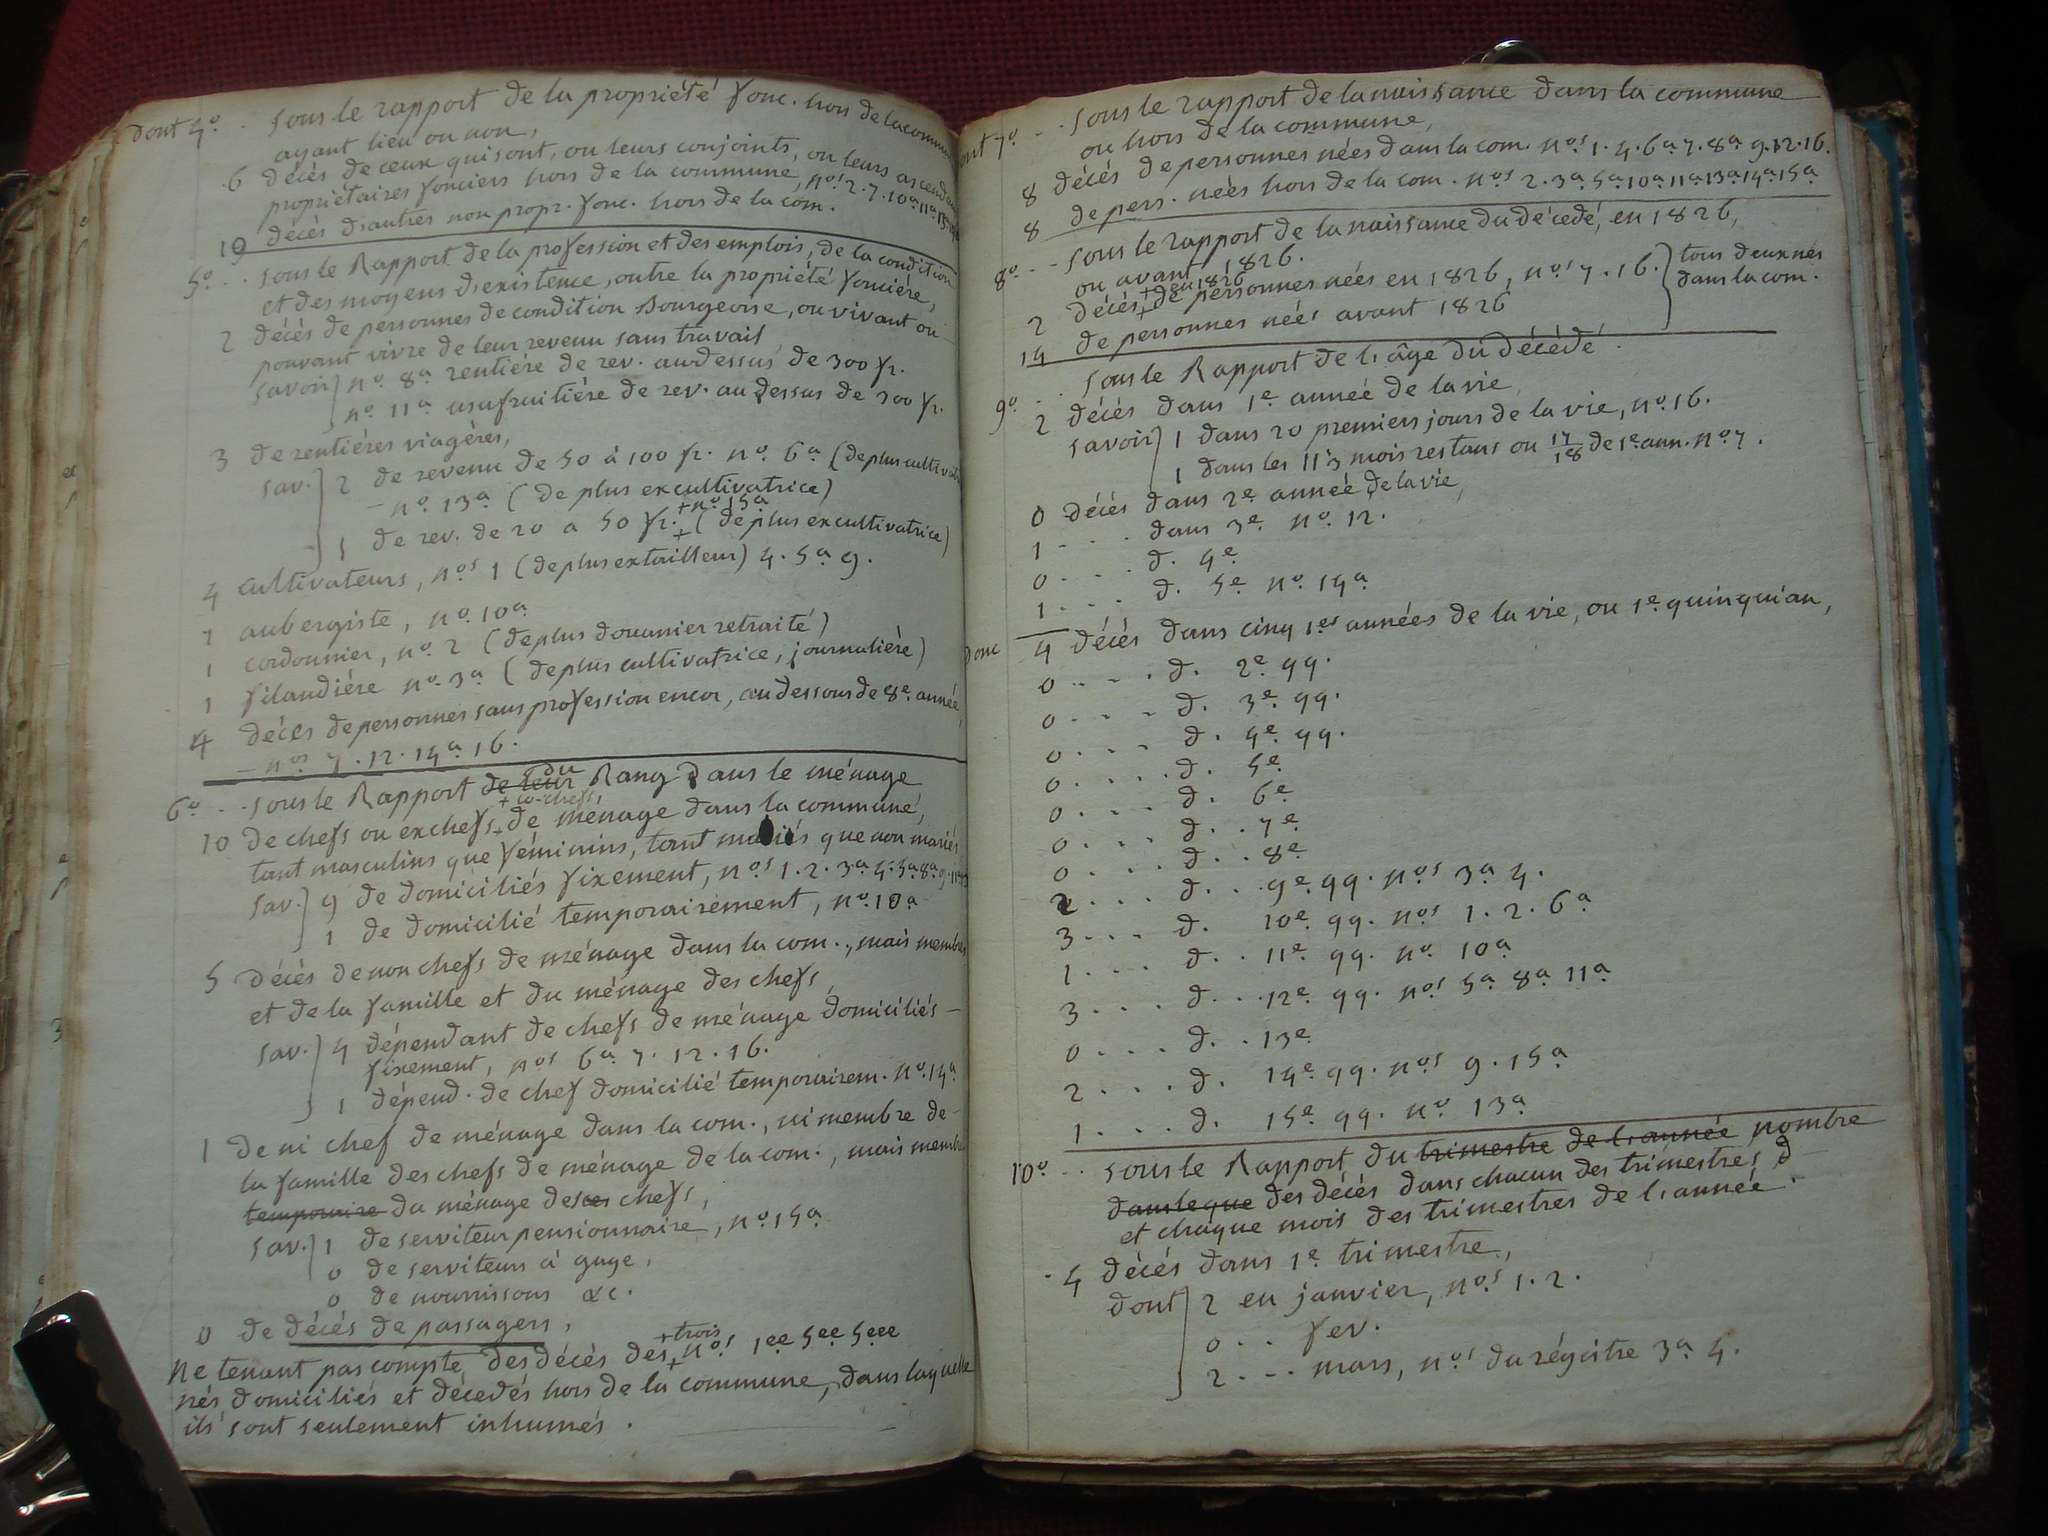 Dont 4º. . sous le rapport de la propriété fonc. hors de la commune
ayant lieu ou non,
.6 décés de ceux qui sont, ou leurs conjoints, ou leurs ascendans
propriétaires fonciers hors de la commune, nos 2. 7. 10a 11a
10 décés d'autres non propr. fonc. hors de la com.
5º. . . sous le Rapport de la profession et des emplois, de la condition
et des moyens d'existence, outre la propriété foncière,
2 décés de personnes de condition Bourgeoise, ou vivant ou
pouvant vivre de leur revenu sans travail
savoir} nº. 8a rentière de rev. audessus de 300 fr.
nº. 11a usufruitière de rev. audessus de 300 fr.
3 de rentières viagères,
sav.} 2 de revenu de 50 à 100 fr. nº. 6a (de plus cultivat
- nº. 13a (de plus excultivatrice)
+nº 15a
1 de rev. de 20 a 50 fr.+ (de plus excultivatrice)
4 cultivateurs, nos 1 (de plus extailleur) 4. 5a 9.
1 aubergiste, nº. 10a
1 cordonnier, nº. 2 (de plus douanier retraité)
1 filandière nº. 3a (de plus cultivatrice, journalière)
4 décés de personnes sans profession encor, au dessous de 8e. année,
- nos 7. 12. 14a 16.
6º . . . sous le Rapport de leur du Rang dans le ménage
+co-chefs,
10 de chefs ou exchefs+ de ménage dans la commune,
tant masculins que féminins, tant mariés que non mariés
sav.} 9 de domiciliés fixement, nos 1. 2. 3a 4. 5a 8a 9. 11a
1 de domicilié temporairement, nº. 10a
5 Décés de non chefs de ménage dans la com., mais membres
et de la famille et du ménage des chefs,
sav.} 4 dépendant de chefs de ménage domiciliés -
fixement, nos 6a 7. 12. 16.
1 dépend. de chef domicilié temporairem. nº. 14a
1 de ni chef de ménage dans la com., ni membre de -
la famille des chefs de ménage de la com., mais membre
temporaire du ménage des ces chefs,
sav.} 1 de serviteur pensionnaire, nº. 15a
0 de serviteurs à gage,
0 de nourrissons &c.
0 de décés de passagers,
+trois
Ne tenant pas compte des décés des+ nos 1ee 5ee 5eee
nés, domiciliés et décedés hors de la commune, dans laquelle
ils sont seulement inhumés.
Dont 7º. . . sous le rapport de la naissance dans la commune
ou hors de la commune,
8 décés de personnes nées dans la com. nos 1. 4. 6a 7. 8a 9. 12. 16.
8 de pers. nées hors de la com. nos 2. 3a 5a 10a 11a 13a 14a 15a
8º. . . sous le rapport de la naissance du décedé, en 1826,
ou avant 1826.
+en 1826
2 décés+ de personnes nées en 1826, nos 7. 16. } tous deux nés
dans la com.
14 de personnes nées avant 1826
9º. . . sous le Rapport de l'âge du décédé.
2 décés dans 1e année de la vie,
savoir} 1 dans 20 premiers jours de la vie, nº. 16.
1 dans les 11 1/3 mois restans ou 17/18 de 1e ann. nº 7.
0 décés dans 2e année de la vie,
1 . . . . dans 3e. nº. 12.
0 . . . . d. 4e
1 . . . . d. 5e nº. 14a
Donc 4 décés dans cinq 1es années de la vie, ou 1e quinquian,
0 . . . . d. 2e qq.
0 . . . . d. 3e qq.
0 . . . . d. 4e qq.
0 . . . . d. 5e
0 . . . . d. 6e
0 . . . . d. . 7e
0 . . . . d. . 8e
2 . . . d. . . 9e qq. nos 3a 4.
3 . . . d. 10e qq. nos 1. 2. 6a
1 . . . . d. . 11e qq. nº 10a
3 . . . . d. . . 12e qq. nos 5a 8a 11a
0 . . . . d. . 13e
2 . . . . d. 14e qq. nos 9. 15a
1 . . . . d. 15e qq. nº 13a
10º. . . sous le Rapport du trimestre de l'année nombre
dans leque des décés dans chacun des trimestres, d
et chaque mois des trimestres de l'année.
. 4 décés dans 1e trimestre,
dont} 2 en janvier, nos 1. 2.
0 . . fev.
2 . . . mars, nos du régistre 3a 4.